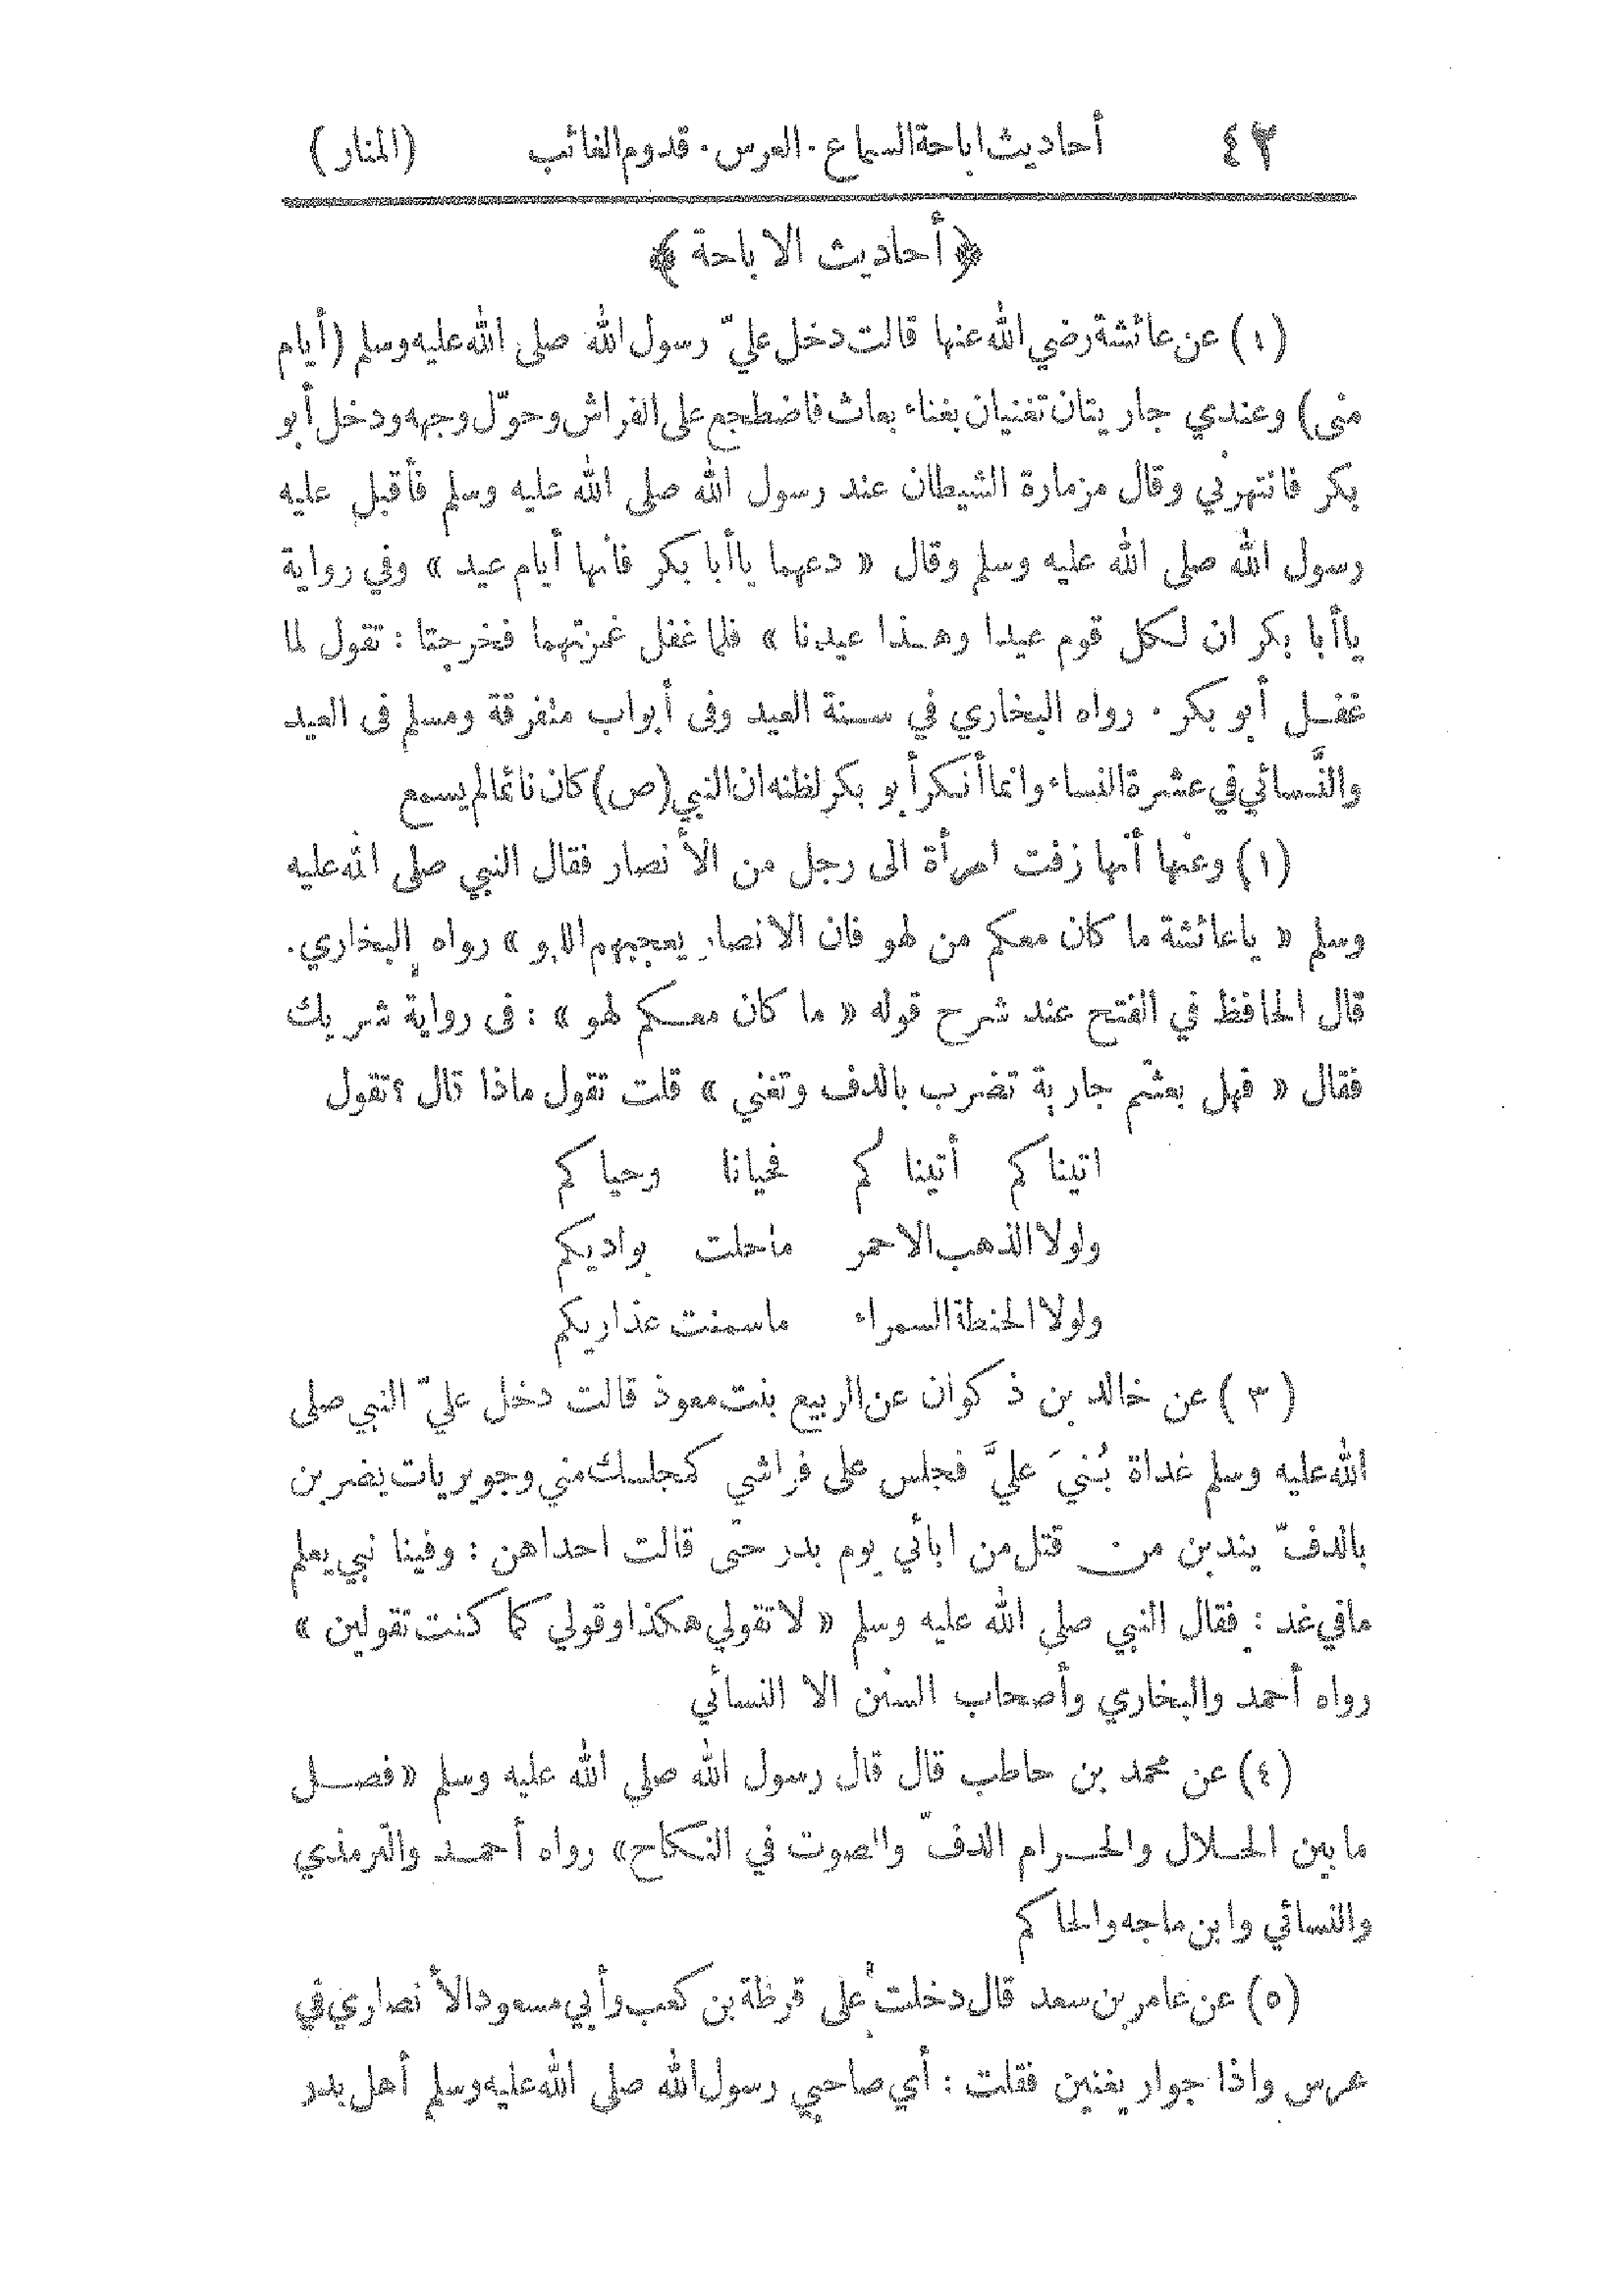 ٤٢ أحاديث اباحة السماع . العرس . قدوم الغائب (المنار)
﴿ أحاديث الاباحة ﴾
(١) عن عائشة رضي الله عنها قالت دخل عليّ رسول الله صلى الله عليه وسلم (أيام
منى) وعندي جاريتان تغنيان بغناء بعاث فاضطجع على الفراش وحوّل وجهه ودخل أبو
بكر فانتهرني وقال مزمارة الشيطان عند رسول الله صلى الله عليه وسلم فأقبل عليه
رسول الله صلى الله عليه وسلم وقال « دعهما ياأبا بكر فانها أيام عيد » وفي رواية
ياأبا بكر ان لكل قوم عيدا وهـذا عيدنا » فلما غفل غمزتهما فخرجتا : تقول لما
غفـل أبو بكر . رواه البخاري في سـنة العيد وفى أبواب متفرقة ومسلم فى العيد
والنَّسائي في عشرة النساء وانما أنكر أبو بكر لظنه ان النبي (ص) كان نائما لم يسمع
(١) وعنها أنها زفت امرأة الى رجل من الأنصار فقال النبي صلى الله عليه
وسلم « ياعائشة ما كان معكم من لهو فان الانصار يعجبهم اللهو » رواه البخاري.
قال الحافظ في الفتح عند شرح قوله « ما كان معـكم لهو » : فى رواية شريك
فقال « فهل بعثتم جارية تضرب بالدف وتغني » قلت تقول ماذا قال ؟ تقول
اتيناكم أتيناكم فحيانا وحياكم
ولولا الذهب الاحمر ماحلت بواديكم
ولولا الحنطة السمراء ماسمنت عذاريكم
(٣) عن خالد بن ذكوان عن الربيع بنت معوذ قالت دخل عليّ النبي صلى
الله عليه وسلم غداة بُنيَ عليَّ فجلس على فراشي كمجلسك مني وجويريات يضربن
بالدفّ يندبن من قتل من ابائي يوم بدر حتّى قالت احداهن : وفينا نبي يعلم
مافي غد : فقال النبي صلى الله عليه وسلم « لا تقولي هكذا وقولي كما كنت تقولين »
رواه أحمد والبخاري وأصحاب السنن الا النسائي
(٤) عن محمد بن حاطب قال قال رسول الله صلى الله عليه وسلم « فصـل
ما بين الحـلال والحـرام الدفّ والصوت في النكاح» رواه أحمـد والترمذي
والنسائي وابن ماجه والحاكم
(٥) عن عامر بن سعد قال دخلت على قرظة بن كعب وأبي مسعود الأنصاري في
عرس واذا جوار يغنين فقلت : أي صاحبي رسول الله صلى الله عليه وسلم أهل بدر